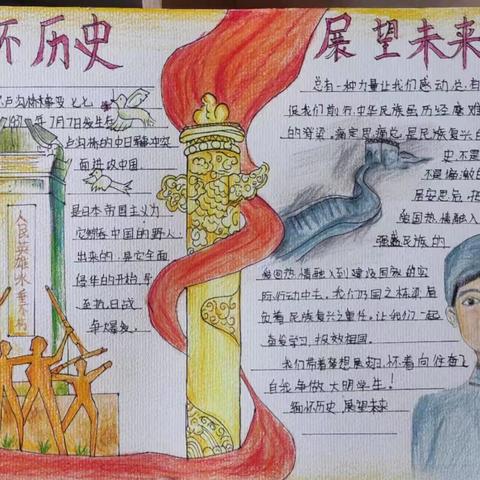 怀历史
展望未来
卢沟桥事变
年7月7日发生在
卢沟桥的中日军冲突
面进攻中国.
是日本帝国主义为
中国的野人
出来的,是它全面
侵华的开始,
至抗日战
争爆发.
人民英雄永垂不朽
总有一种力量让我们感动,总有
促我们前行,中华民族虽历经磨难
的脊梁.痛定思痛,总是民族复兴的
史,不是
不是偏激的
居安思危,把
爱国热情融入
强盛民族的
爱国热情融入到建设国家的实
际行动中去.我们祖国之栋梁,肩
负着民族复兴之重任.让我们一起
奋发学习,报效祖国.
我们带着梦想展翅,怀着向往奋飞
自我争做文明学生!
缅怀历史 展望未来